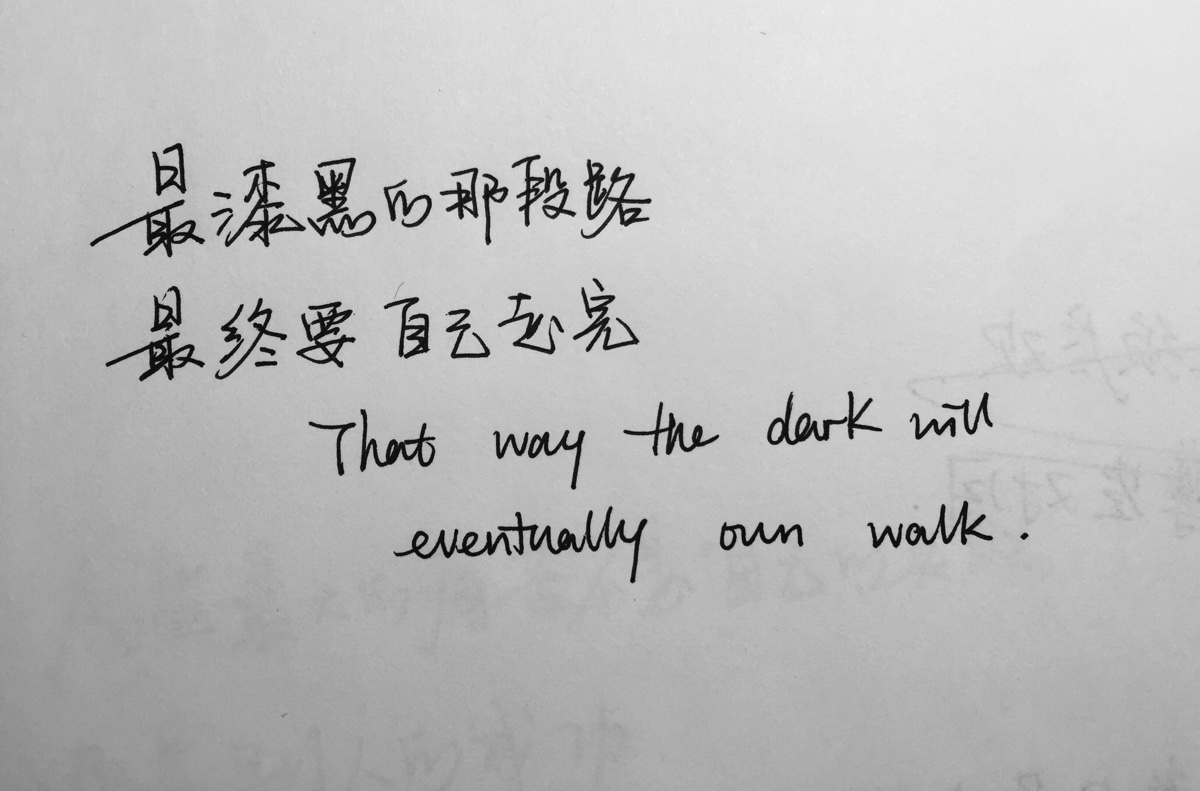 最漆黑的那段路
最终要自己走完
That way the dark will
eventually own walk.